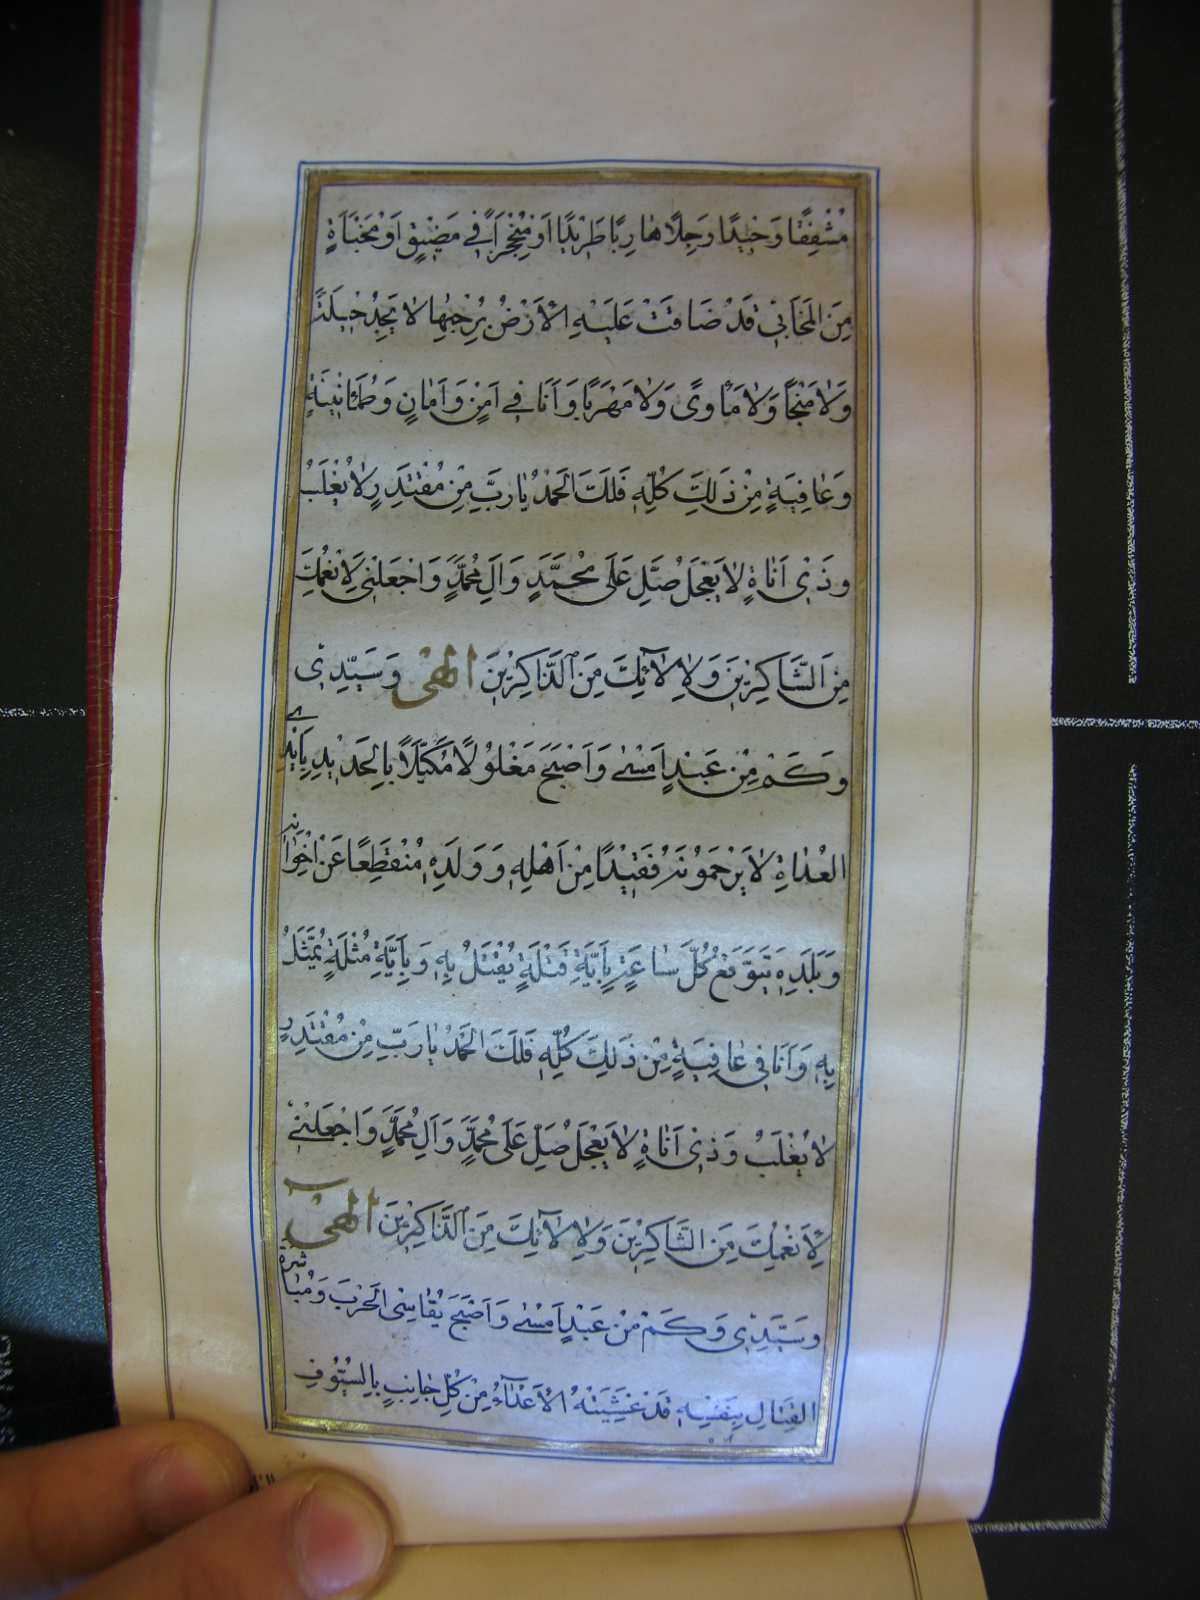 مُشْفِقًا وَحِيدًا وَجِلًا هَارِبًا طَرِيدًا اَوْ مُنْجَحِرًا فِي مَضِيقٍ اَوْ مَخْبَاَةٍ
مِنَ الْمَخَابِي قَدْ ضَاقَتْ عَلَيْهِ الْاَرْضُ بِرُحْبِهَا لَا يَجِدُ حِيلَةً
وَلَا مَنْجًا وَلَا مَاْوىً وَلَا مَهْرَبًا وَاَنَا فِي اَمْنٍ وَاَمَانٍ وَطُمَاْنِينَةٍ
وَعَافِيَةٍ مِنْ ذَلِكَ كُلِّهِ فَلَكَ الْحَمْدُ يَا رَبِّ مِنْ مُقْتَدِرٍ لَا يُغْلَبُ
وَذِي اَنَاةٍ لَا يَعْجَلُ صَلِّ عَلَى مُحَمَّدٍ وَآلِ مُحَمَّدٍ وَاجْعَلْنِي لِاَنْعُمِكَ
مِنَ الشَّاكِرِينَ وَلِآلَائِكَ مِنَ الذَّاكِرِينَ اِلٰهِي وَسَيِّدِي
وَكَمْ مِنْ عَبْدٍ اَمْسٰى وَاَصْبَحَ مَغْلُولًا مُكَبَّلًا بِالْحَدِيدِ بِاَيْدِي
الْعُدَاةِ لَا يَرْحَمُونَهُ فَقِيدًا مِنْ اَهْلِهِ وَوَلَدِهِ مُنْقَطِعًا عَنْ اِخْوَانِهِ
وَبَلَدِهِ يَتَوَقَّعُ كُلَّ سَاعَةٍ بِاَيَّةِ قَتْلَةٍ يُقْتَلُ بِهِ وَبِاَيَّةِ مُثْلَةٍ يُمَثَّلُ
بِهِ وَاَنَا فِي عَافِيَةٍ مِنْ ذَلِكَ كُلِّهِ فَلَكَ الْحَمْدُ يَا رَبِّ مِنْ مُقْتَدِرٍ
لَا يُغْلَبُ وَذِي اَنَاةٍ لَا يَعْجَلُ صَلِّ عَلَى مُحَمَّدٍ وَآلِ مُحَمَّدٍ وَاجْعَلْنِي
لِاَنْعُمِكَ مِنَ الشَّاكِرِينَ وَلِآلَائِكَ مِنَ الذَّاكِرِينَ اِلٰهِي
وَسَيِّدِي وَكَمْ مِنْ عَبْدٍ اَمْسٰى وَاَصْبَحَ يُقَاسِي الْحَرْبَ وَمُبَاشَرَةَ
الْقِتَالِ بِنَفْسِهِ قَدْ غَشِيَتْهُ الْاَعْدَاءُ مِنْ كُلِّ جَانِبٍ بِالسُّيُوفِ